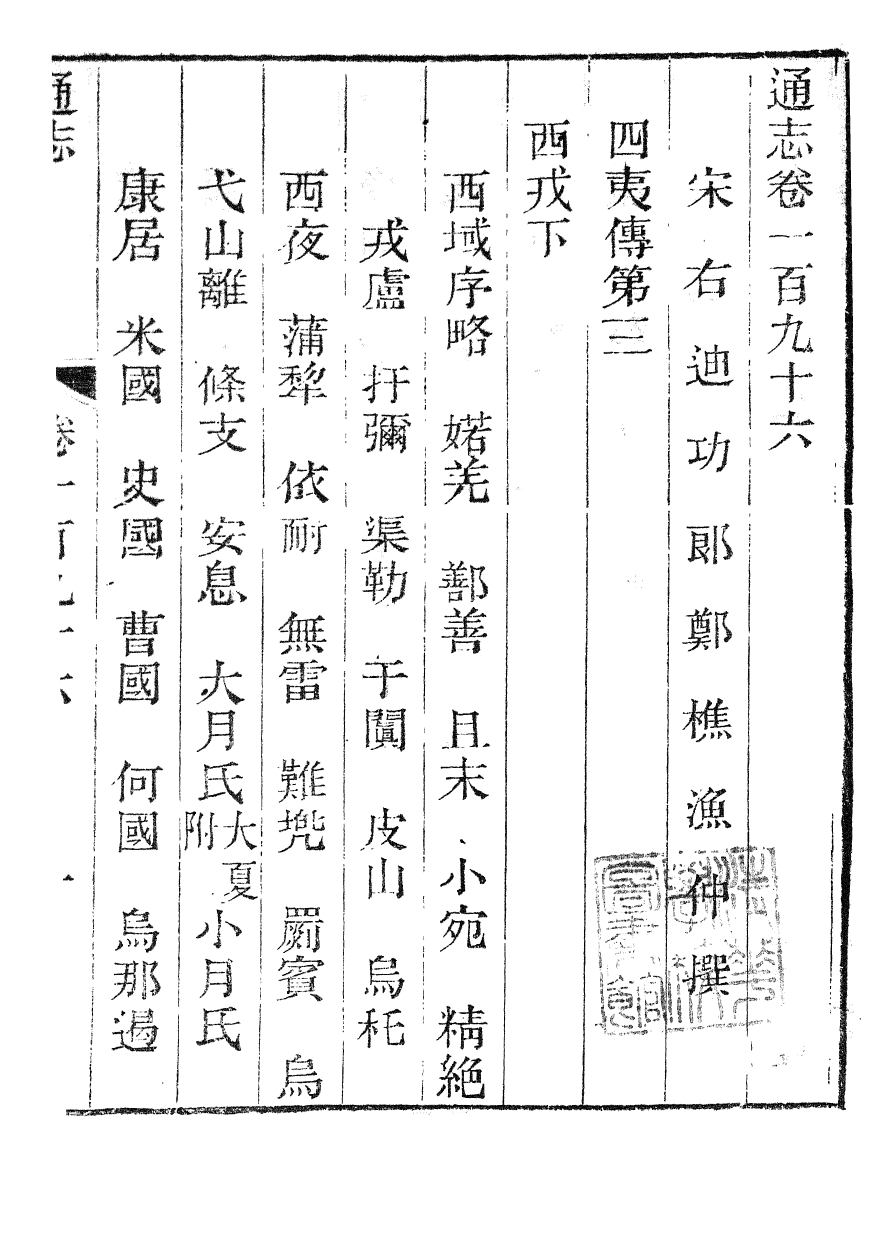 通志卷一百九十六
宋右迪功郎鄭樵漁仲撰
四夷傳第三
西戎下
西域序略 婼羌 鄯善 且末 小宛 精絶
戎盧 扞彌 渠勒 于闐 皮山 烏秅
西夜 蒲犂 依耐 無雷 難兠 罽賓 烏
弋山離 條支 安息 大月氏大夏附 小月氏
康居 米國 史國 曹國 何國 烏那遏
通志 卷一百九十六 一